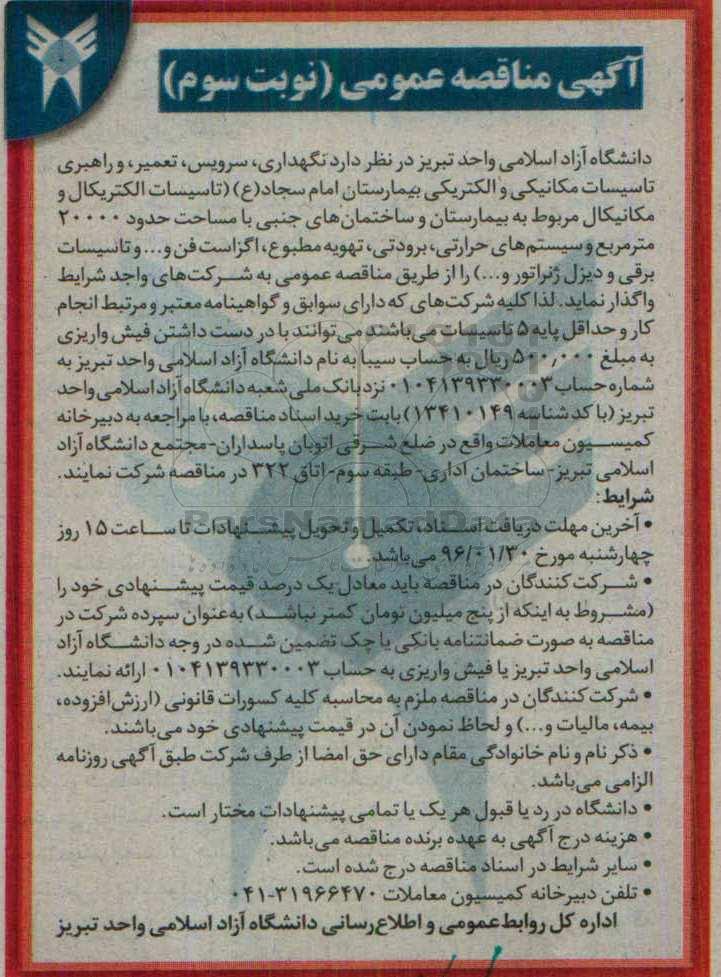 آگهی مناقصه عمومی (نوبت سوم)
دانشگاه آزاد اسلامی واحد تبریز در نظر دارد نگهداری، سرویس، تعمیر، و راهبری
تاسیسات مکانیکی و الکتریکی بیمارستان امام سجاد(ع) (تاسیسات الکتریکال و
مکانیکال مربوط به بیمارستان و ساختمان‌های جنبی با مساحت حدود ۲۰۰۰۰
مترمربع و سیستم‌های حرارتی، برودتی، تهویه مطبوع، اگزاست فن و... و تاسیسات
برقی و دیزل ژنراتور و...) را از طریق مناقصه عمومی به شرکت‌های واجد شرایط
واگذار نماید. لذا کلیه شرکت‌های که دارای سوابق و گواهینامه معتبر و مرتبط انجام
کار و حداقل پایه ۵ تاسیسات می‌باشند می‌توانند با در دست داشتن فیش واریزی
به مبلغ ۵۰۰٫۰۰۰ ریال به حساب سیبا به نام دانشگاه آزاد اسلامی واحد تبریز به
شماره حساب ۰۱۰۴۱۳۹۳۳۰۰۰۳ نزد بانک ملی شعبه دانشگاه آزاد اسلامی واحد
تبریز (با کد شناسه ۱۳۴۱۰۱۴۹) بابت خرید اسناد مناقصه، با مراجعه به دبیرخانه
کمیسیون معاملات واقع در ضلع شرقی اتوبان پاسداران-مجتمع دانشگاه آزاد
اسلامی تبریز- ساختمان اداری- طبقه سوم- اتاق ۳۲۲ در مناقصه شرکت نمایند.
شرایط:
• آخرین مهلت دریافت اسناد، تکمیل و تحویل پیشنهادات تا ساعت ۱۵ روز
چهارشنبه مورخ ۹۶/۰۱/۳۰ می‌باشد.
• شرکت کنندگان در مناقصه باید معادل یک درصد قیمت پیشنهادی خود را
(مشروط به اینکه از پنج میلیون تومان کمتر نباشد) به‌عنوان سپرده شرکت در
مناقصه به صورت ضمانتنامه بانکی یا چک تضمین شده در وجه دانشگاه آزاد
اسلامی واحد تبریز یا فیش واریزی به حساب ۰۱۰۴۱۳۹۳۳۰۰۰۳ ارائه نمایند.
• شرکت کنندگان در مناقصه ملزم به محاسبه کلیه کسورات قانونی (ارزش افزوده،
بیمه، مالیات و...) و لحاظ نمودن آن در قیمت پیشنهادی خود می‌باشند.
• ذکر نام و نام خانوادگی مقام دارای حق امضا از طرف شرکت طبق آگهی روزنامه
الزامی می‌باشد.
• دانشگاه در رد یا قبول هر یک یا تمامی پیشنهادات مختار است.
• هزینه درج آگهی به عهده برنده مناقصه می‌باشد.
• سایر شرایط در اسناد مناقصه درج شده است.
• تلفن دبیرخانه کمیسیون معاملات ۳۱۹۶۶۴۷۰-۰۴۱
اداره کل روابط عمومی و اطلاع‌رسانی دانشگاه آزاد اسلامی واحد تبریز
ParsNamadData